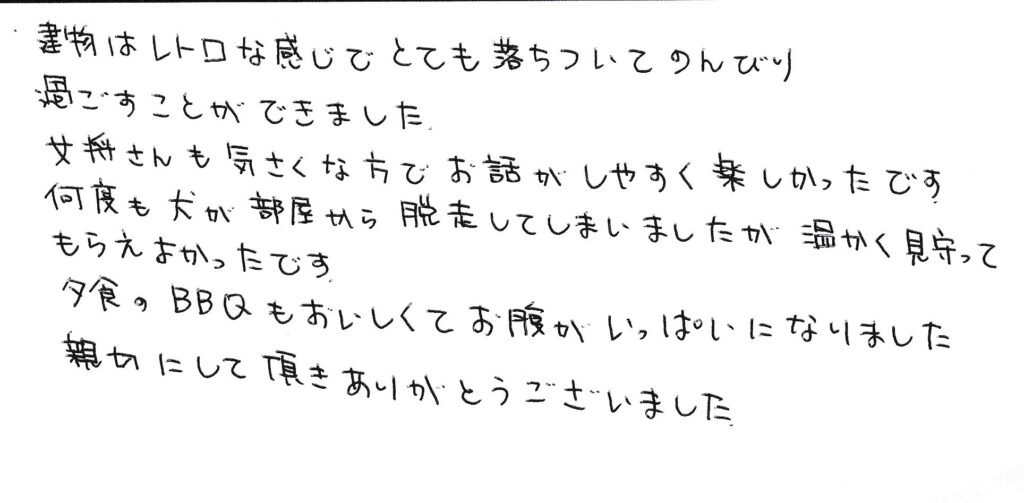 建物はレトロな感じでとても落ちついてのんびり
過ごすことができました.
女将さんも気さくな方でお話がしやすく楽しかったです
何度も犬が部屋から脱走してしまいましたが温かく見守って
もらえよかったです.
夕食のBBQもおいしくてお腹がいっぱいになりました
親切にして頂きありがとうございました.